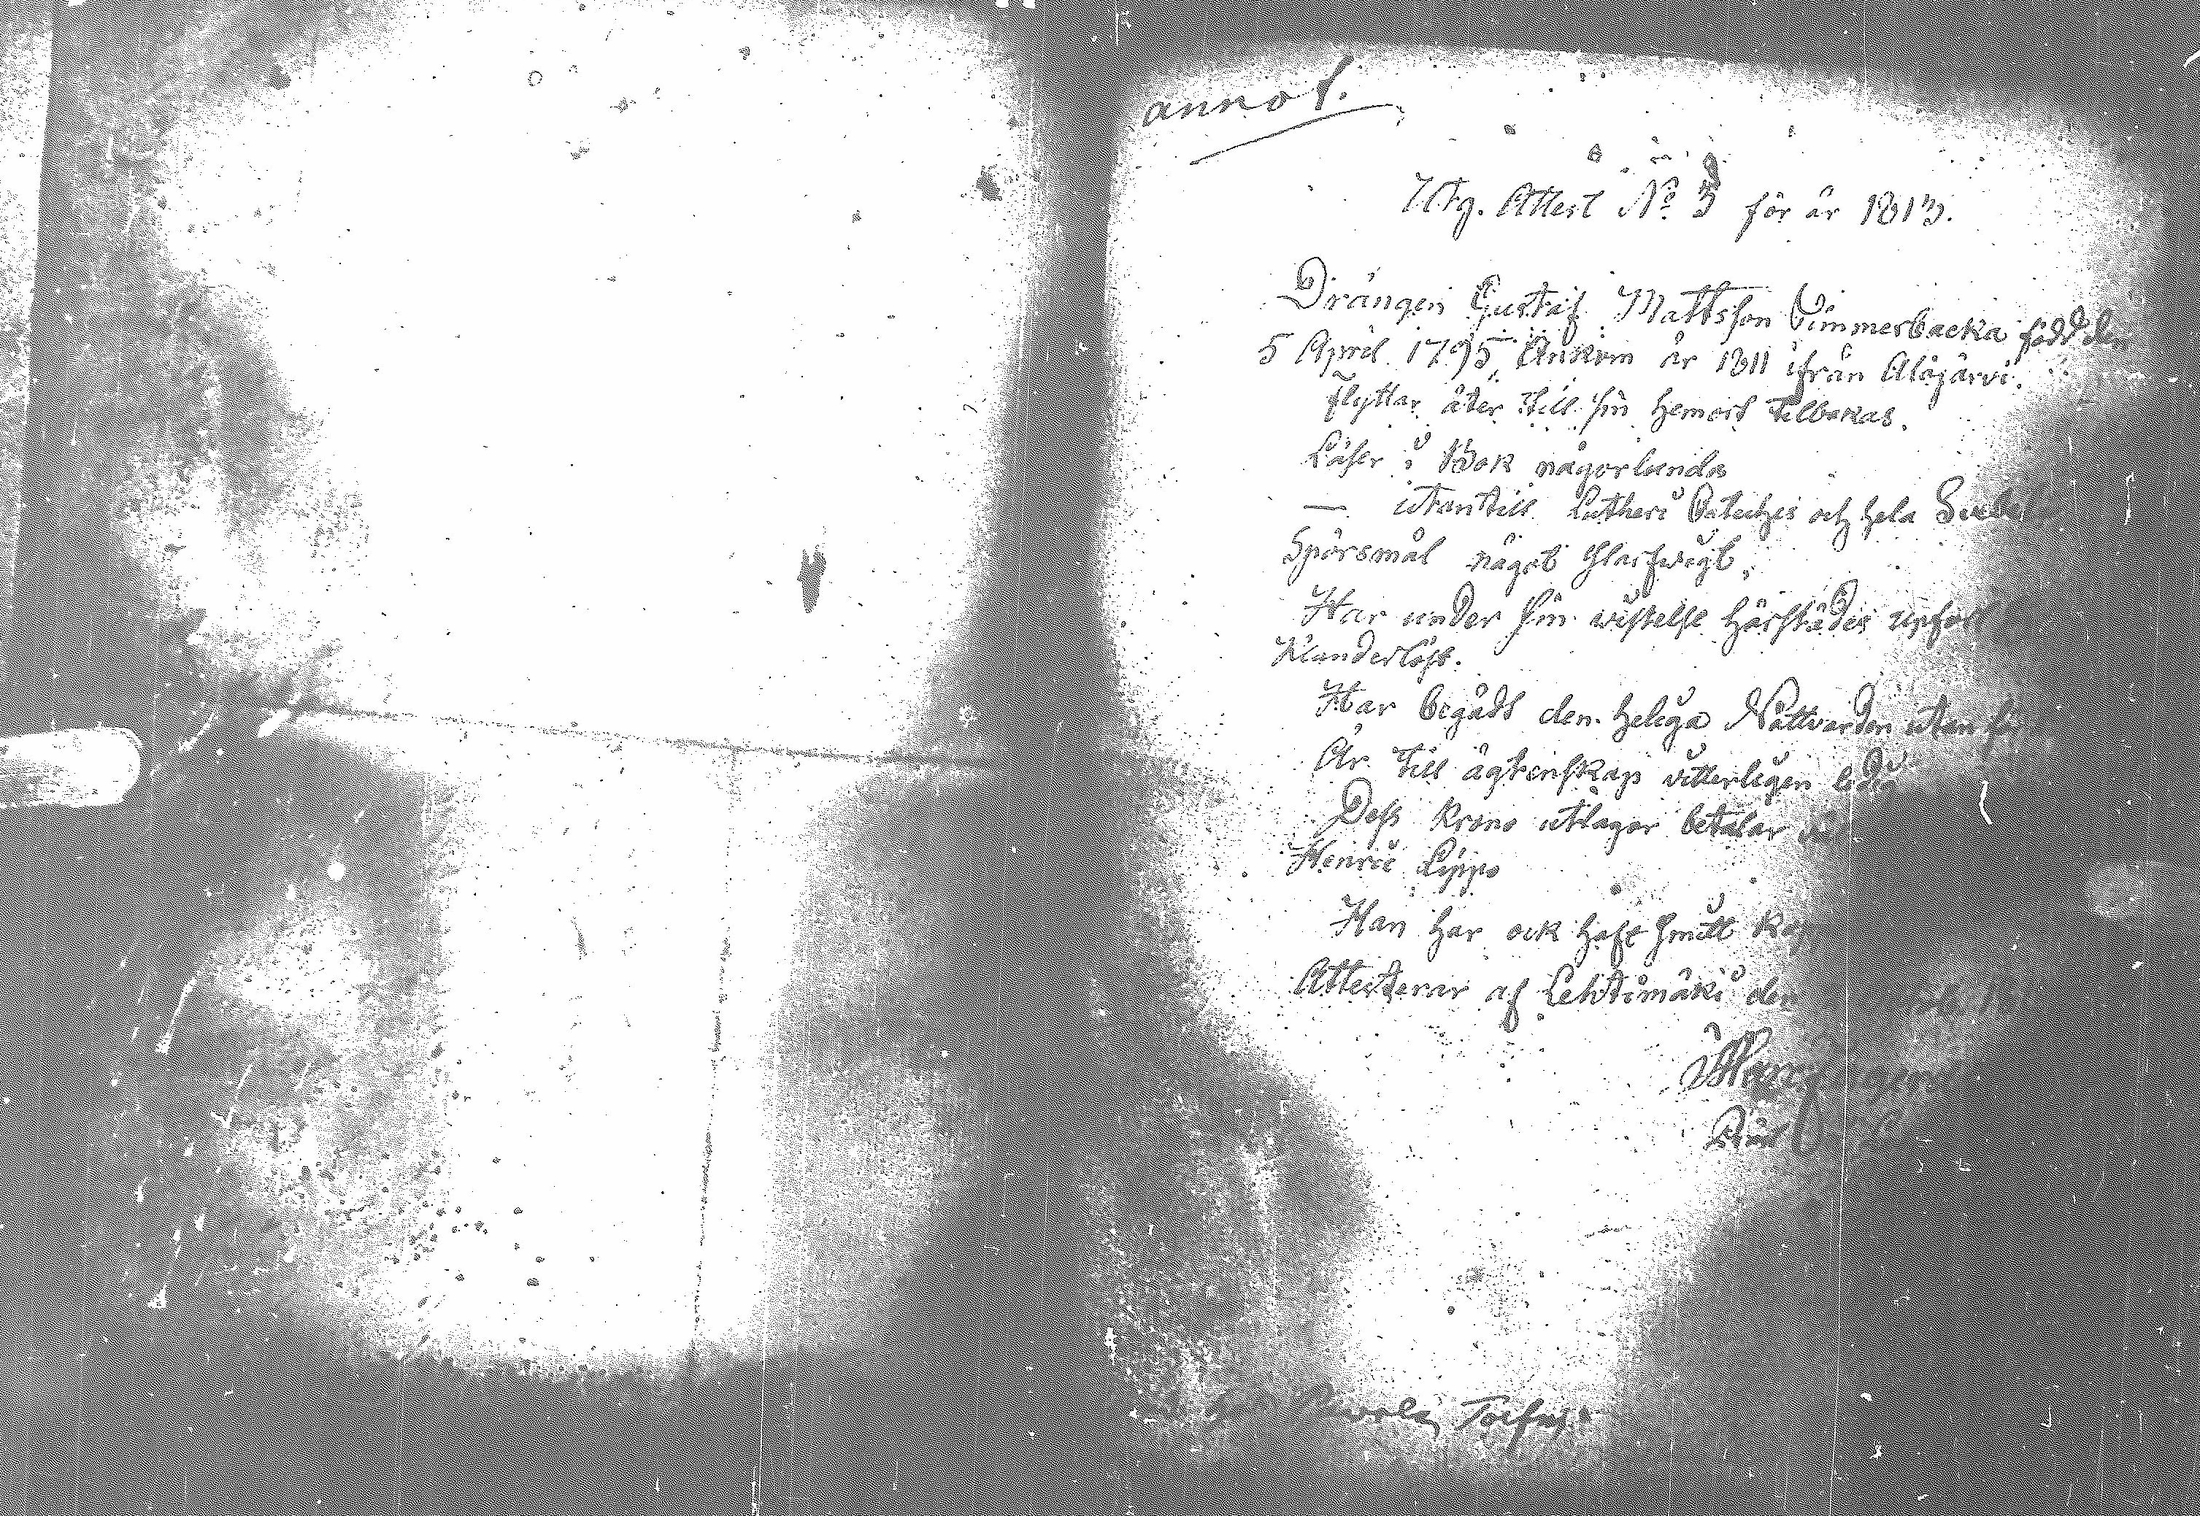 annot.
Utg. Attest No 5 för år 1813.
Drängen Gustaf Mattsson Timmerbacka född den
5 April 1795, Ankom år 1811 ifrån Alajärvi.
flyttar åter till sin hemort tillbakas.
Läser i Bok någorlunda
— utantill Lutheri Cateches och hela
Spörsmål något slarfwigt.
Har under sin wistelse härstädes upfört
Klanderlöst.
Har begådt den heliga Nattvarden utan
Är till ägtenskap vitterligen ledi
Dess krono utlagor betalar
Henric Lippo
Han har ock haft smitt kop
Attesterar af Lehtimäki den